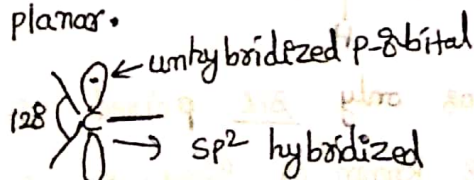 planar.
unhybridized p-orbital
128 C
sp² hybridized